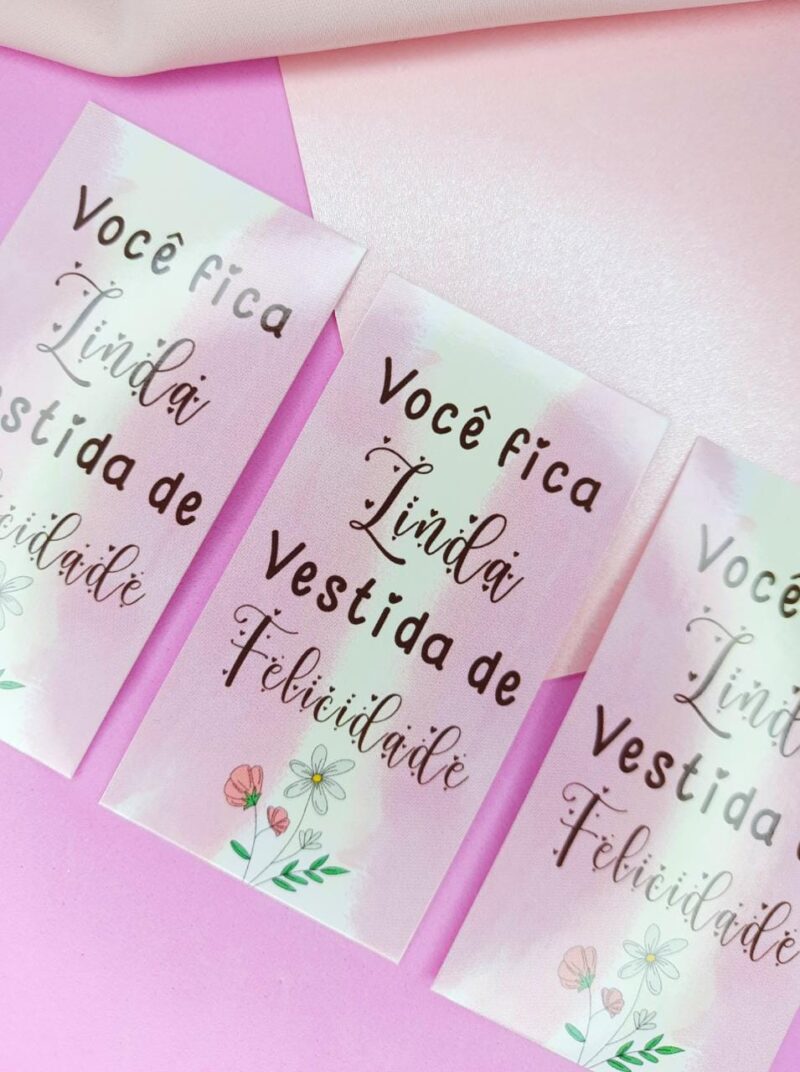 Você fica
Linda
Vestida de
Felicidade
Você fica
Linda
Vestida de
Felicidade
Você
Linda
Vestida
Felicidade